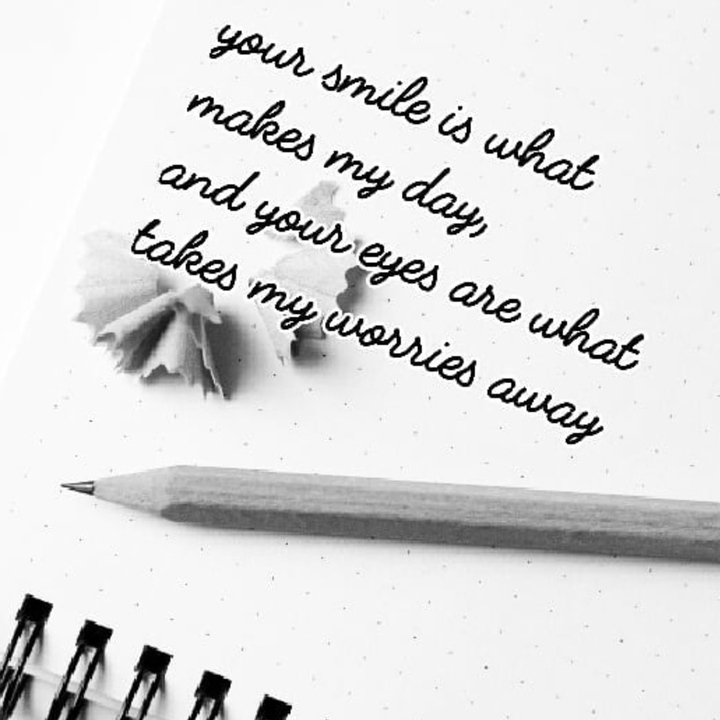 your smile is what
makes my day,
and your eyes are what
takes my worries away